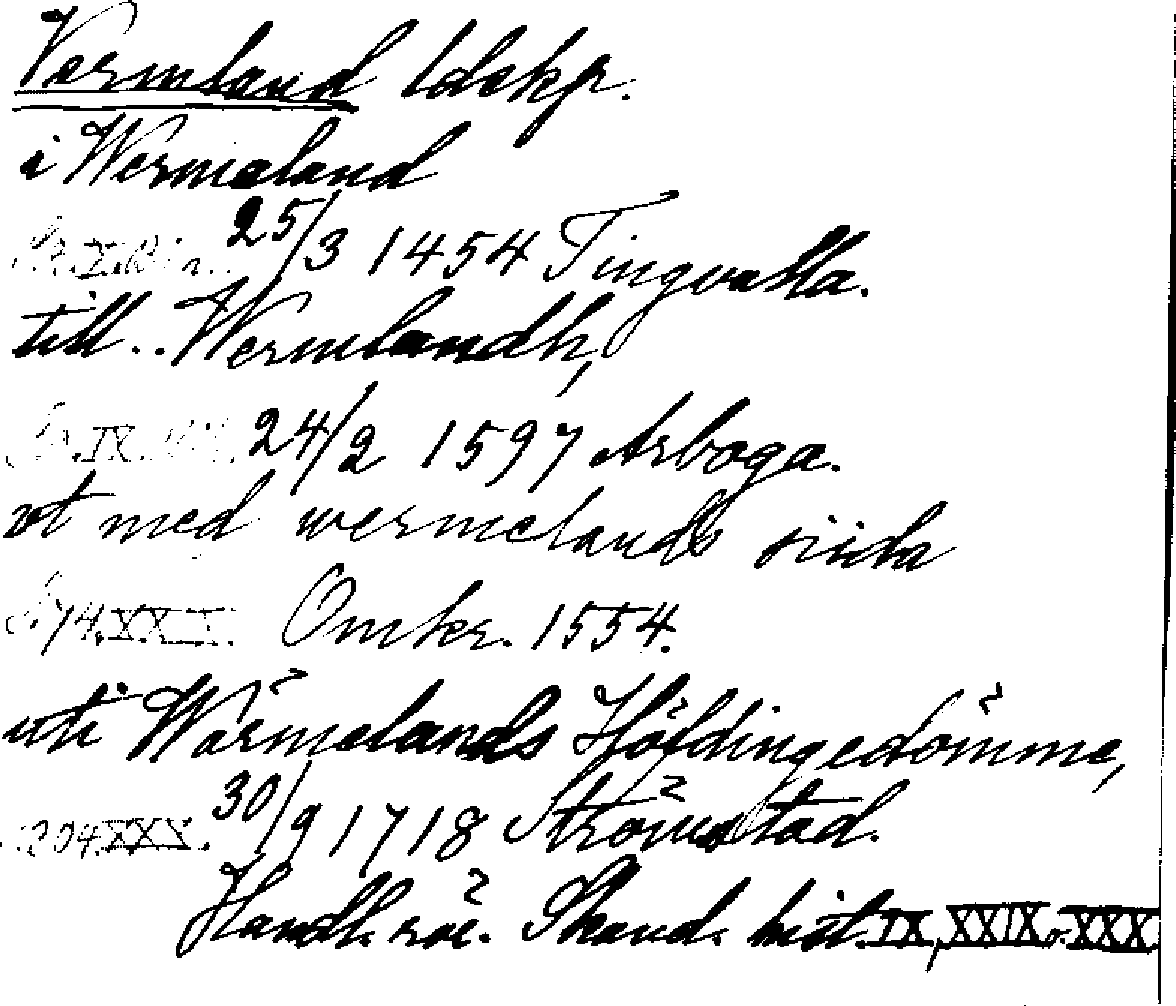 Vermland ldskp.
i Wermaland
25/3 1454 Tingvalla.
till.. Wermlandh,
IX. 24/2 1597 Arboga.
vt med wermelands siida
74. Omkr. 1554.
uti Wärmelands Höfdingedömme,
204. XXX. 30/9 1718 Strömstad.
Handl. rör. Skand. hist. IX, XXIX o. XXX